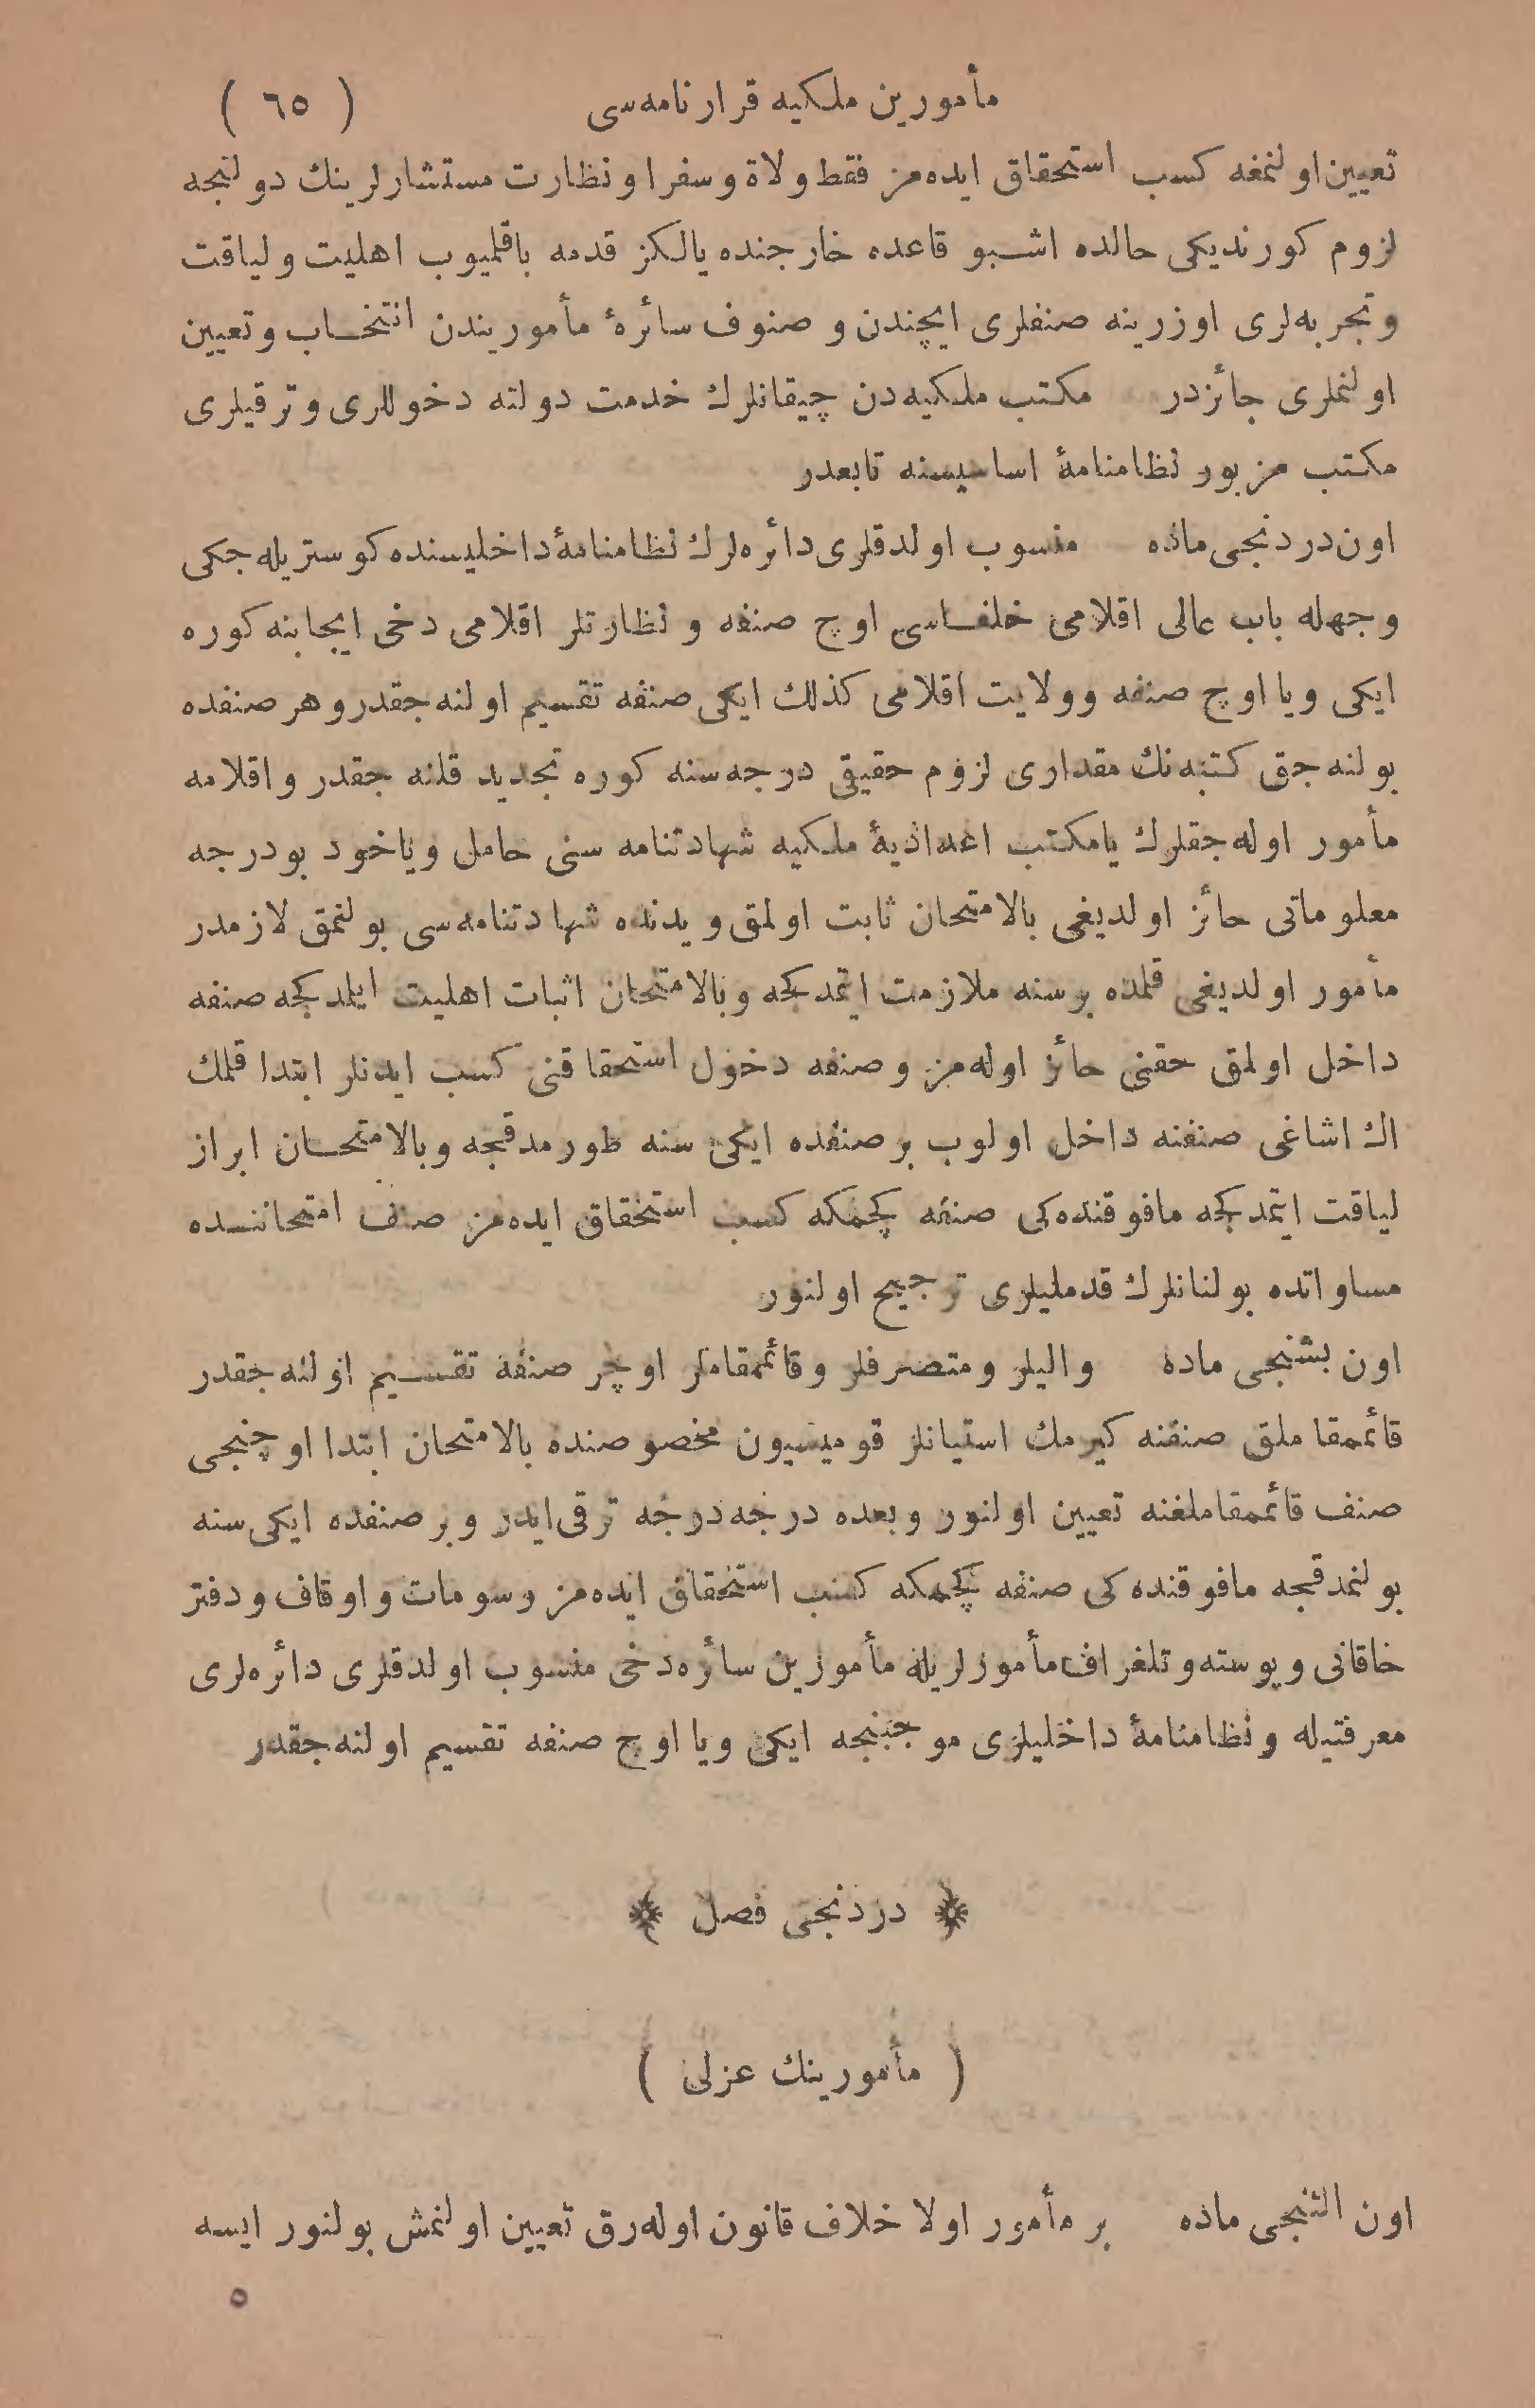 مأمورین ملکیه قرارنامه‌سی ( ٦٥ )
تعیین اولنمغه کسب استحقاق ایده‌مز فقط ولاة وسفرا ونظارت مستشارلرینك دولتجه
لزوم کورندیکی حالده اشبو قاعده خارجنده یالکز قدمه باقلمیوب اهلیت ولیاقت
وتجربه‌لری اوزرینه صنفلری ایچندن و صنوف سائرۀ مأموریندن انتخاب وتعیین
اولنملری جائزدر مکتب ملکیه‌دن چیقانلرك خدمت دولته دخوللری وترقیلری
مکتب مزبور نظامنامۀ اساسیسنه تابعدر
اون‌دردنجی ماده منسوب اولدقلری دائره‌لرك نظامنامۀ داخلیسنده کوستریله‌جکی
وجهله باب عالی اقلامی خلفاسی اوچ صنفه و نظارتلر اقلامی دخی ایجابنه کوره
ایکی ویا اوچ صنفه وولایت اقلامی کذلك ایکی صنفه تقسیم اولنه‌جقدر وهر صنفده
بولنه‌جق کتبه‌نك مقداری لزوم حقیقی درجه‌سنه کوره تجدید قلنه‌جقدر واقلامه
مأمور اوله‌جقلرك یامکتب اعدادیۀ ملکیه شهادتنامه‌سنی حامل ویاخود بودرجه
معلوماتی حائز اولدیغی بالامتحان ثابت اولمق ویدنده شهادتنامه‌سی بولنمق لازمدر
مأمور اولدیغی قلمده برسنه ملازمت ایتمدکجه وبالامتحان اثبات اهلیت ایلمدکجه صنفه
داخل اولمق حقنی حائز اوله‌مز وصنفه دخول استحقاقنی کسب ایدنلر ابتدا قلمك
اك اشاغی صنفنه داخل اولوب برصنفده ایکی سنه طورمدقجه وبالامتحان ابراز
لیاقت ایتمدکجه مافوقنده‌کی صنفه کچمکه کسب استحقاق ایده‌مز صنف امتحاننده
مساواتده بولنانلرك قدملیلری ترجیح اولنور
اون بشنجی ماده والیلر ومتصرفلر وقائممقاملر اوچر صنفه تقسیم اولنه‌جقدر
قائممقاملق صنفنه کیرمك استیانلر قومیسیون مخصوصنده بالامتحان ابتدا اوچنجی
صنف قائممقاملغنه تعیین اولنور وبعده درجه درجه ترقی ایدر وبر صنفده ایکی سنه
بولنمدقجه مافوقنده‌کی صنفه کچمکه کسب استحقاق ایده‌مز رسومات واوقاف ودفتر
خاقانی وپوسته وتلغراف مأمورلریله مأمورین سائره‌دخی منسوب اولدقلری دائره‌لری
معرفتیله ونظامنامۀ داخلیلری موجبنجه ایکی ویا اوچ صنفه تقسیم اولنه‌جقدر
﴿ دردنجی فصل ﴾
( مأمورینك عزلی )
اون التنجی ماده بر مأمور اولا خلاف قانون اوله‌رق تعیین اولنمش بولنور ایسه
٥